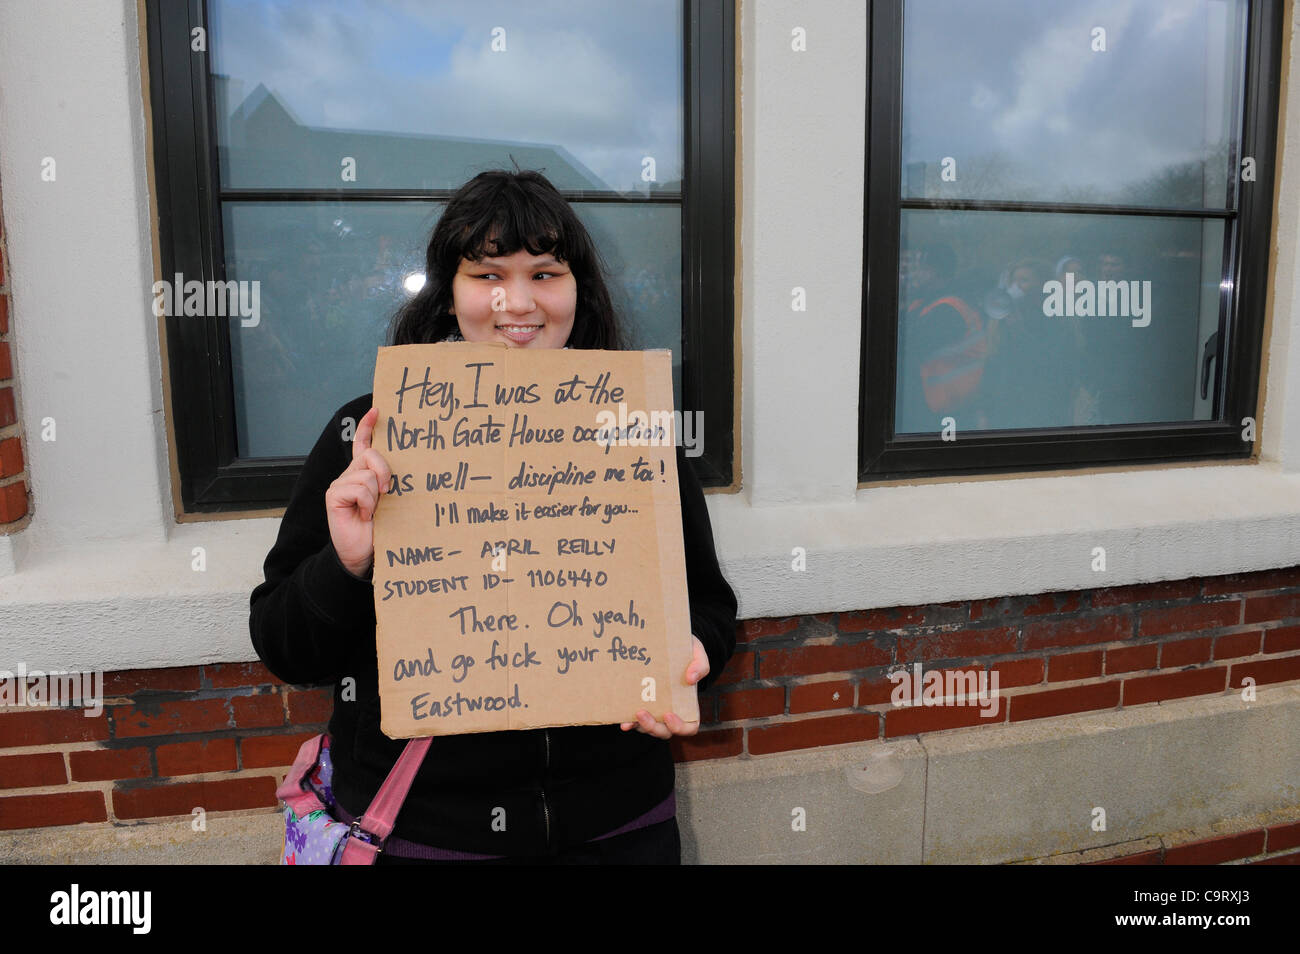 Hey, I was at the
North Gate House occupation
as well— discipline me too!
I'll make it easier for you...
NAME— APRIL REILLY
STUDENT ID— 1106440
There. Oh yeah,
and go fuck your fees,
Eastwood.
a
alamy
alamy
Image ID: C9RXJ3
www.alamy.com